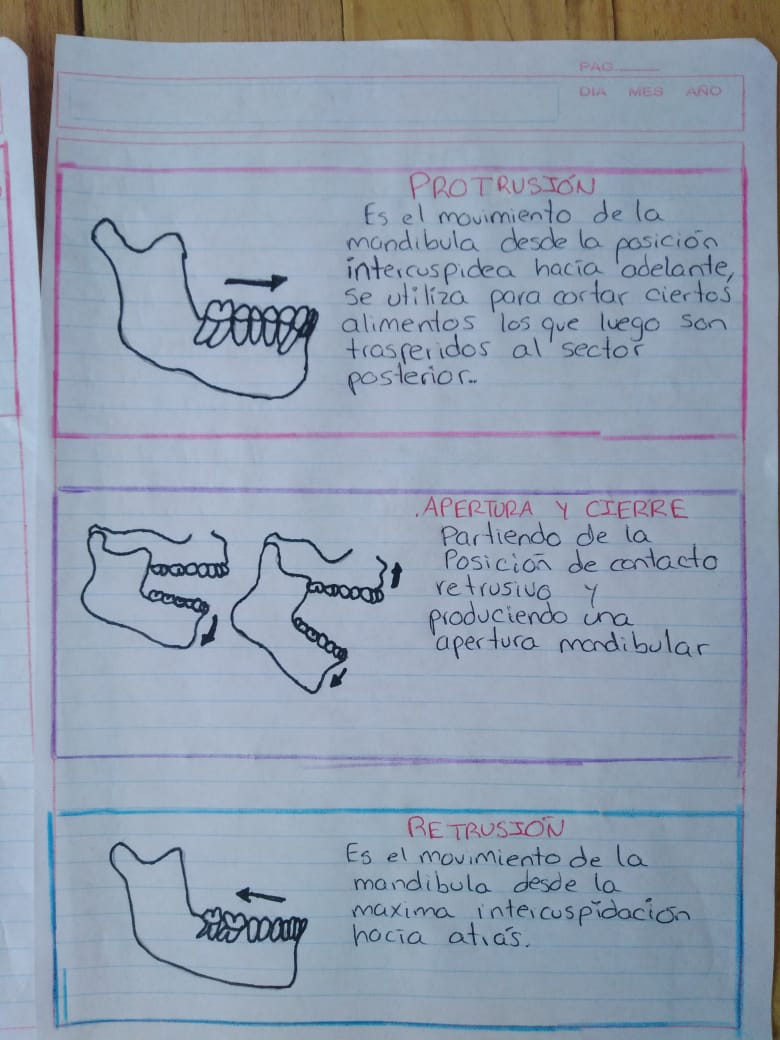 PAG.
DIA MES AÑO
PROTRUSIÓN
Es el movimiento de la
mandibula desde la posición
intercuspidea hacia adelante,
se utiliza para cortar ciertos
alimentos los que luego son
trasperidos al sector
posterior..
.APERTURA Y CIERRE
Partiendo de la
Posición de contacto
retrusivo y
produciendo una
apertura mandibular
RETRUSIÓN
Es el movimiento de la
mandibula desde la
maxima intercuspidación
hacia atrás.